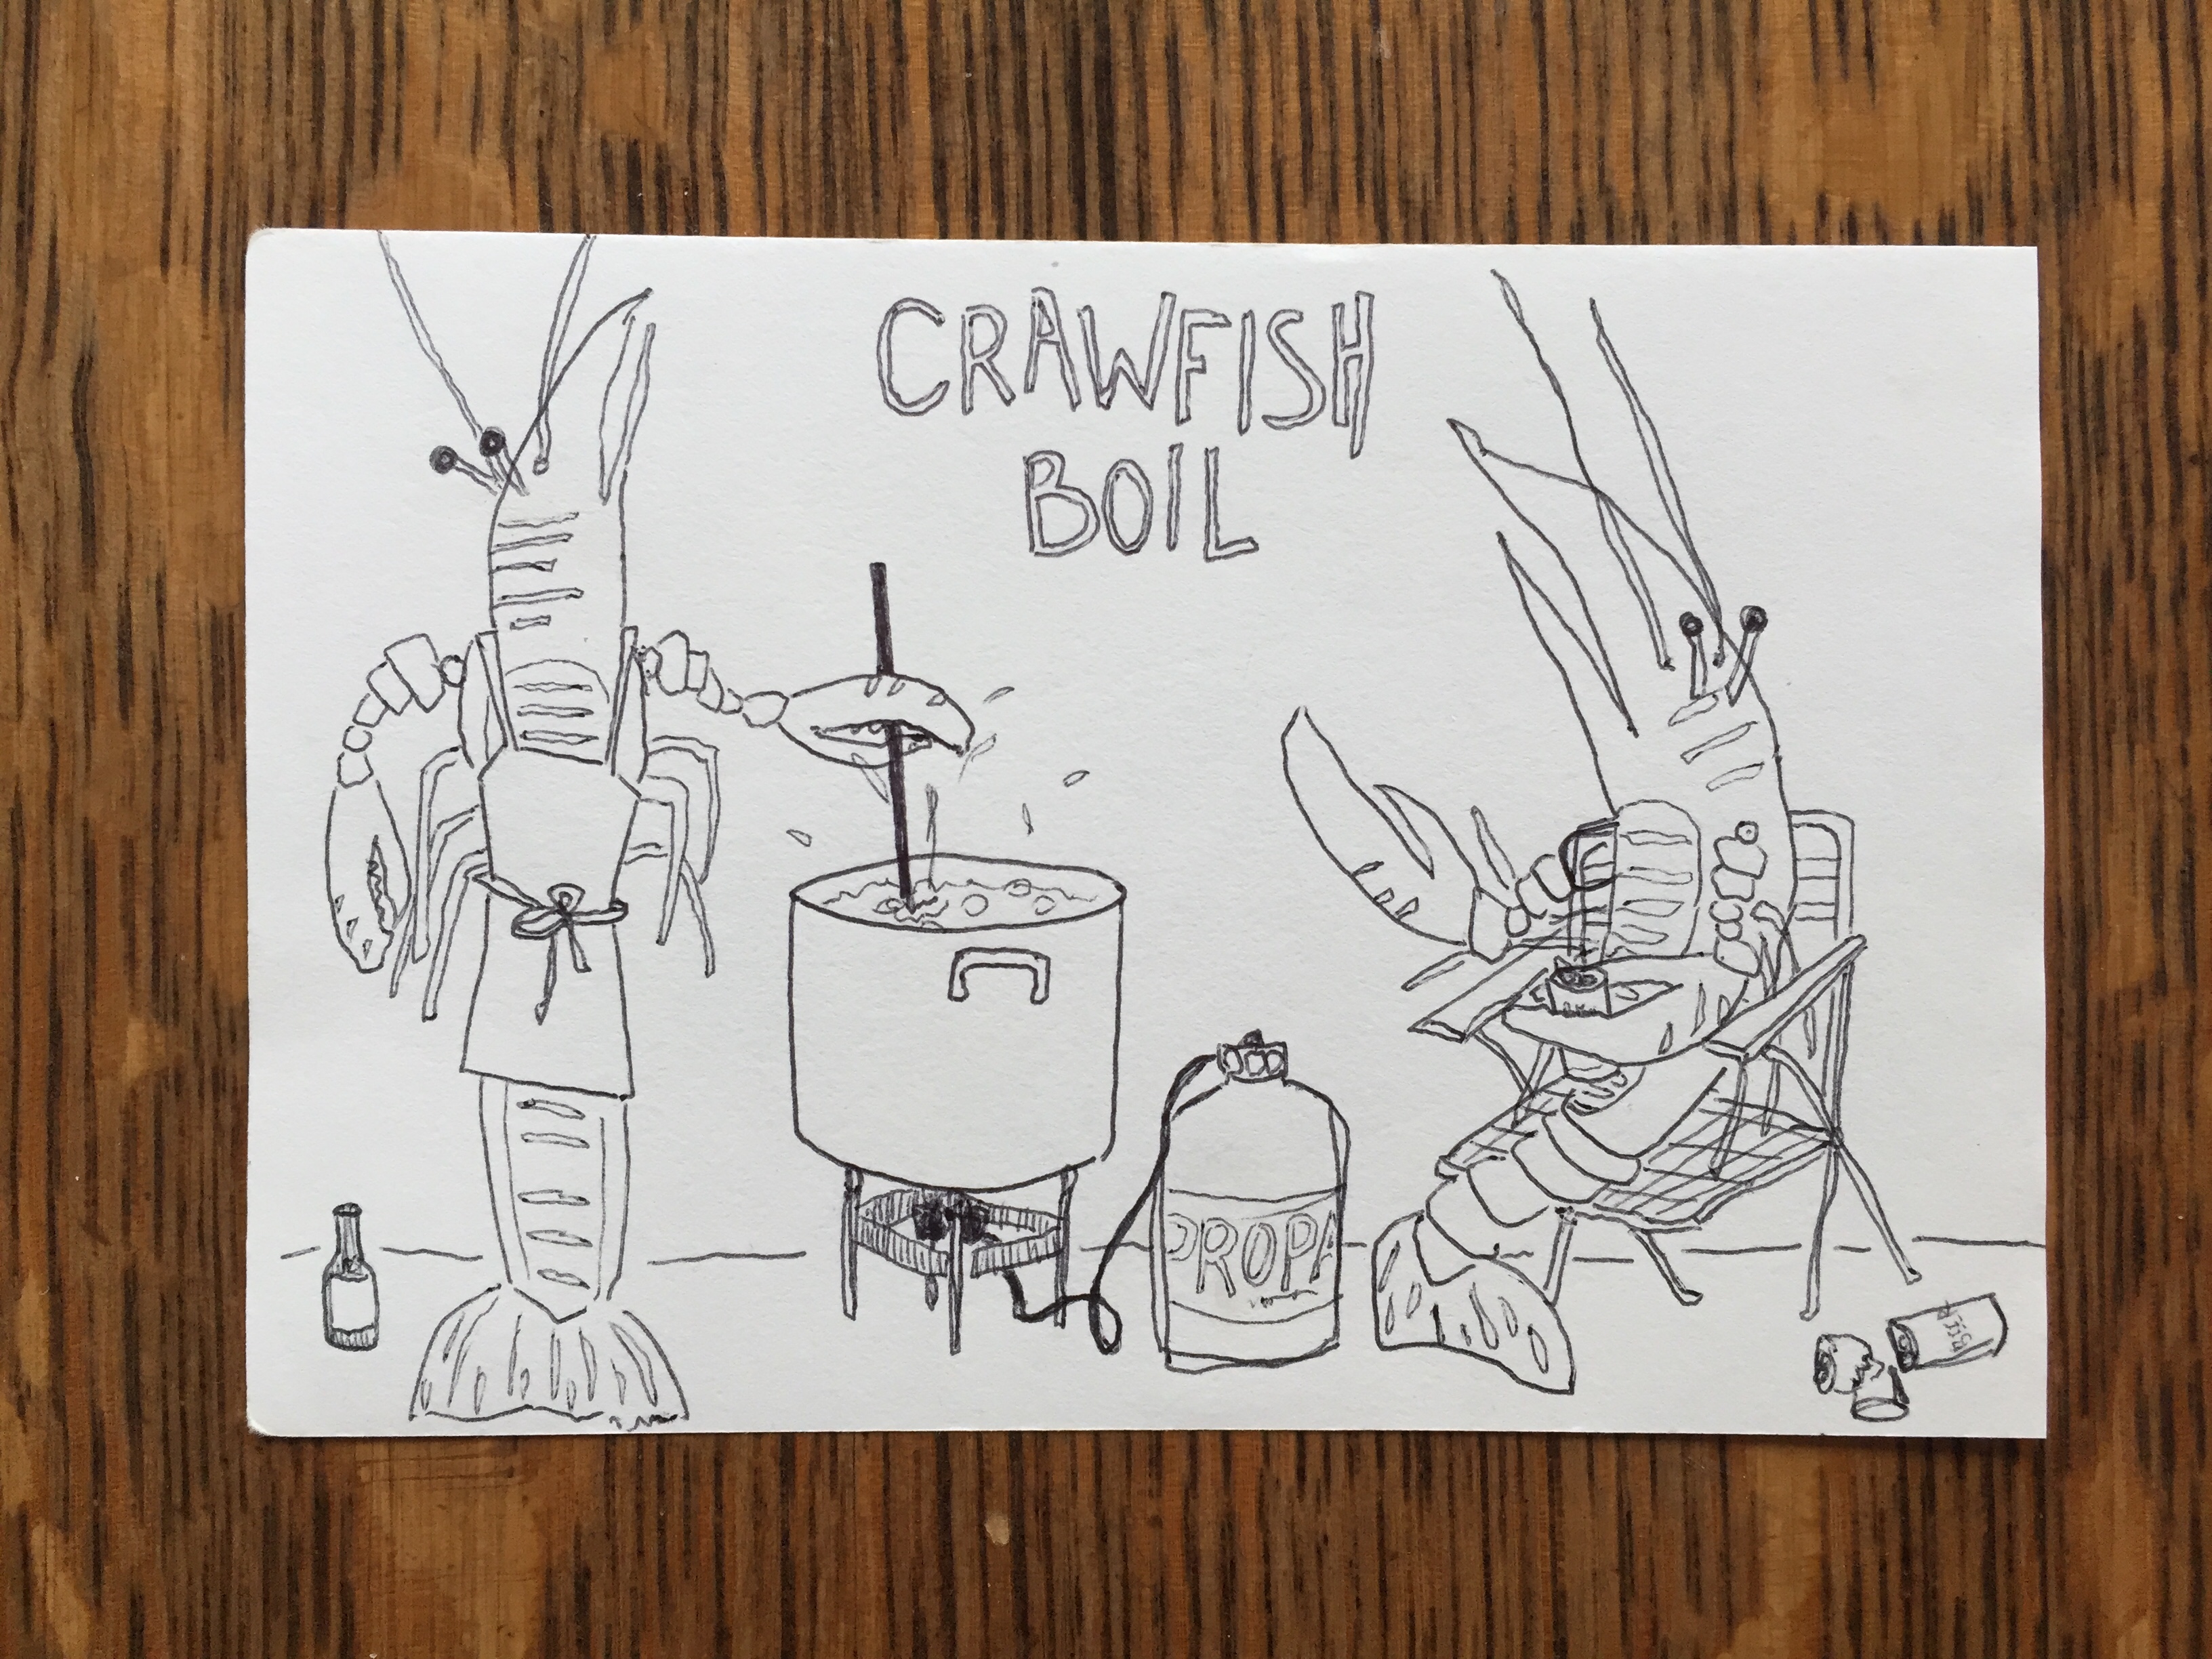 CRAWFISH
BOIL
PROPA
BEER